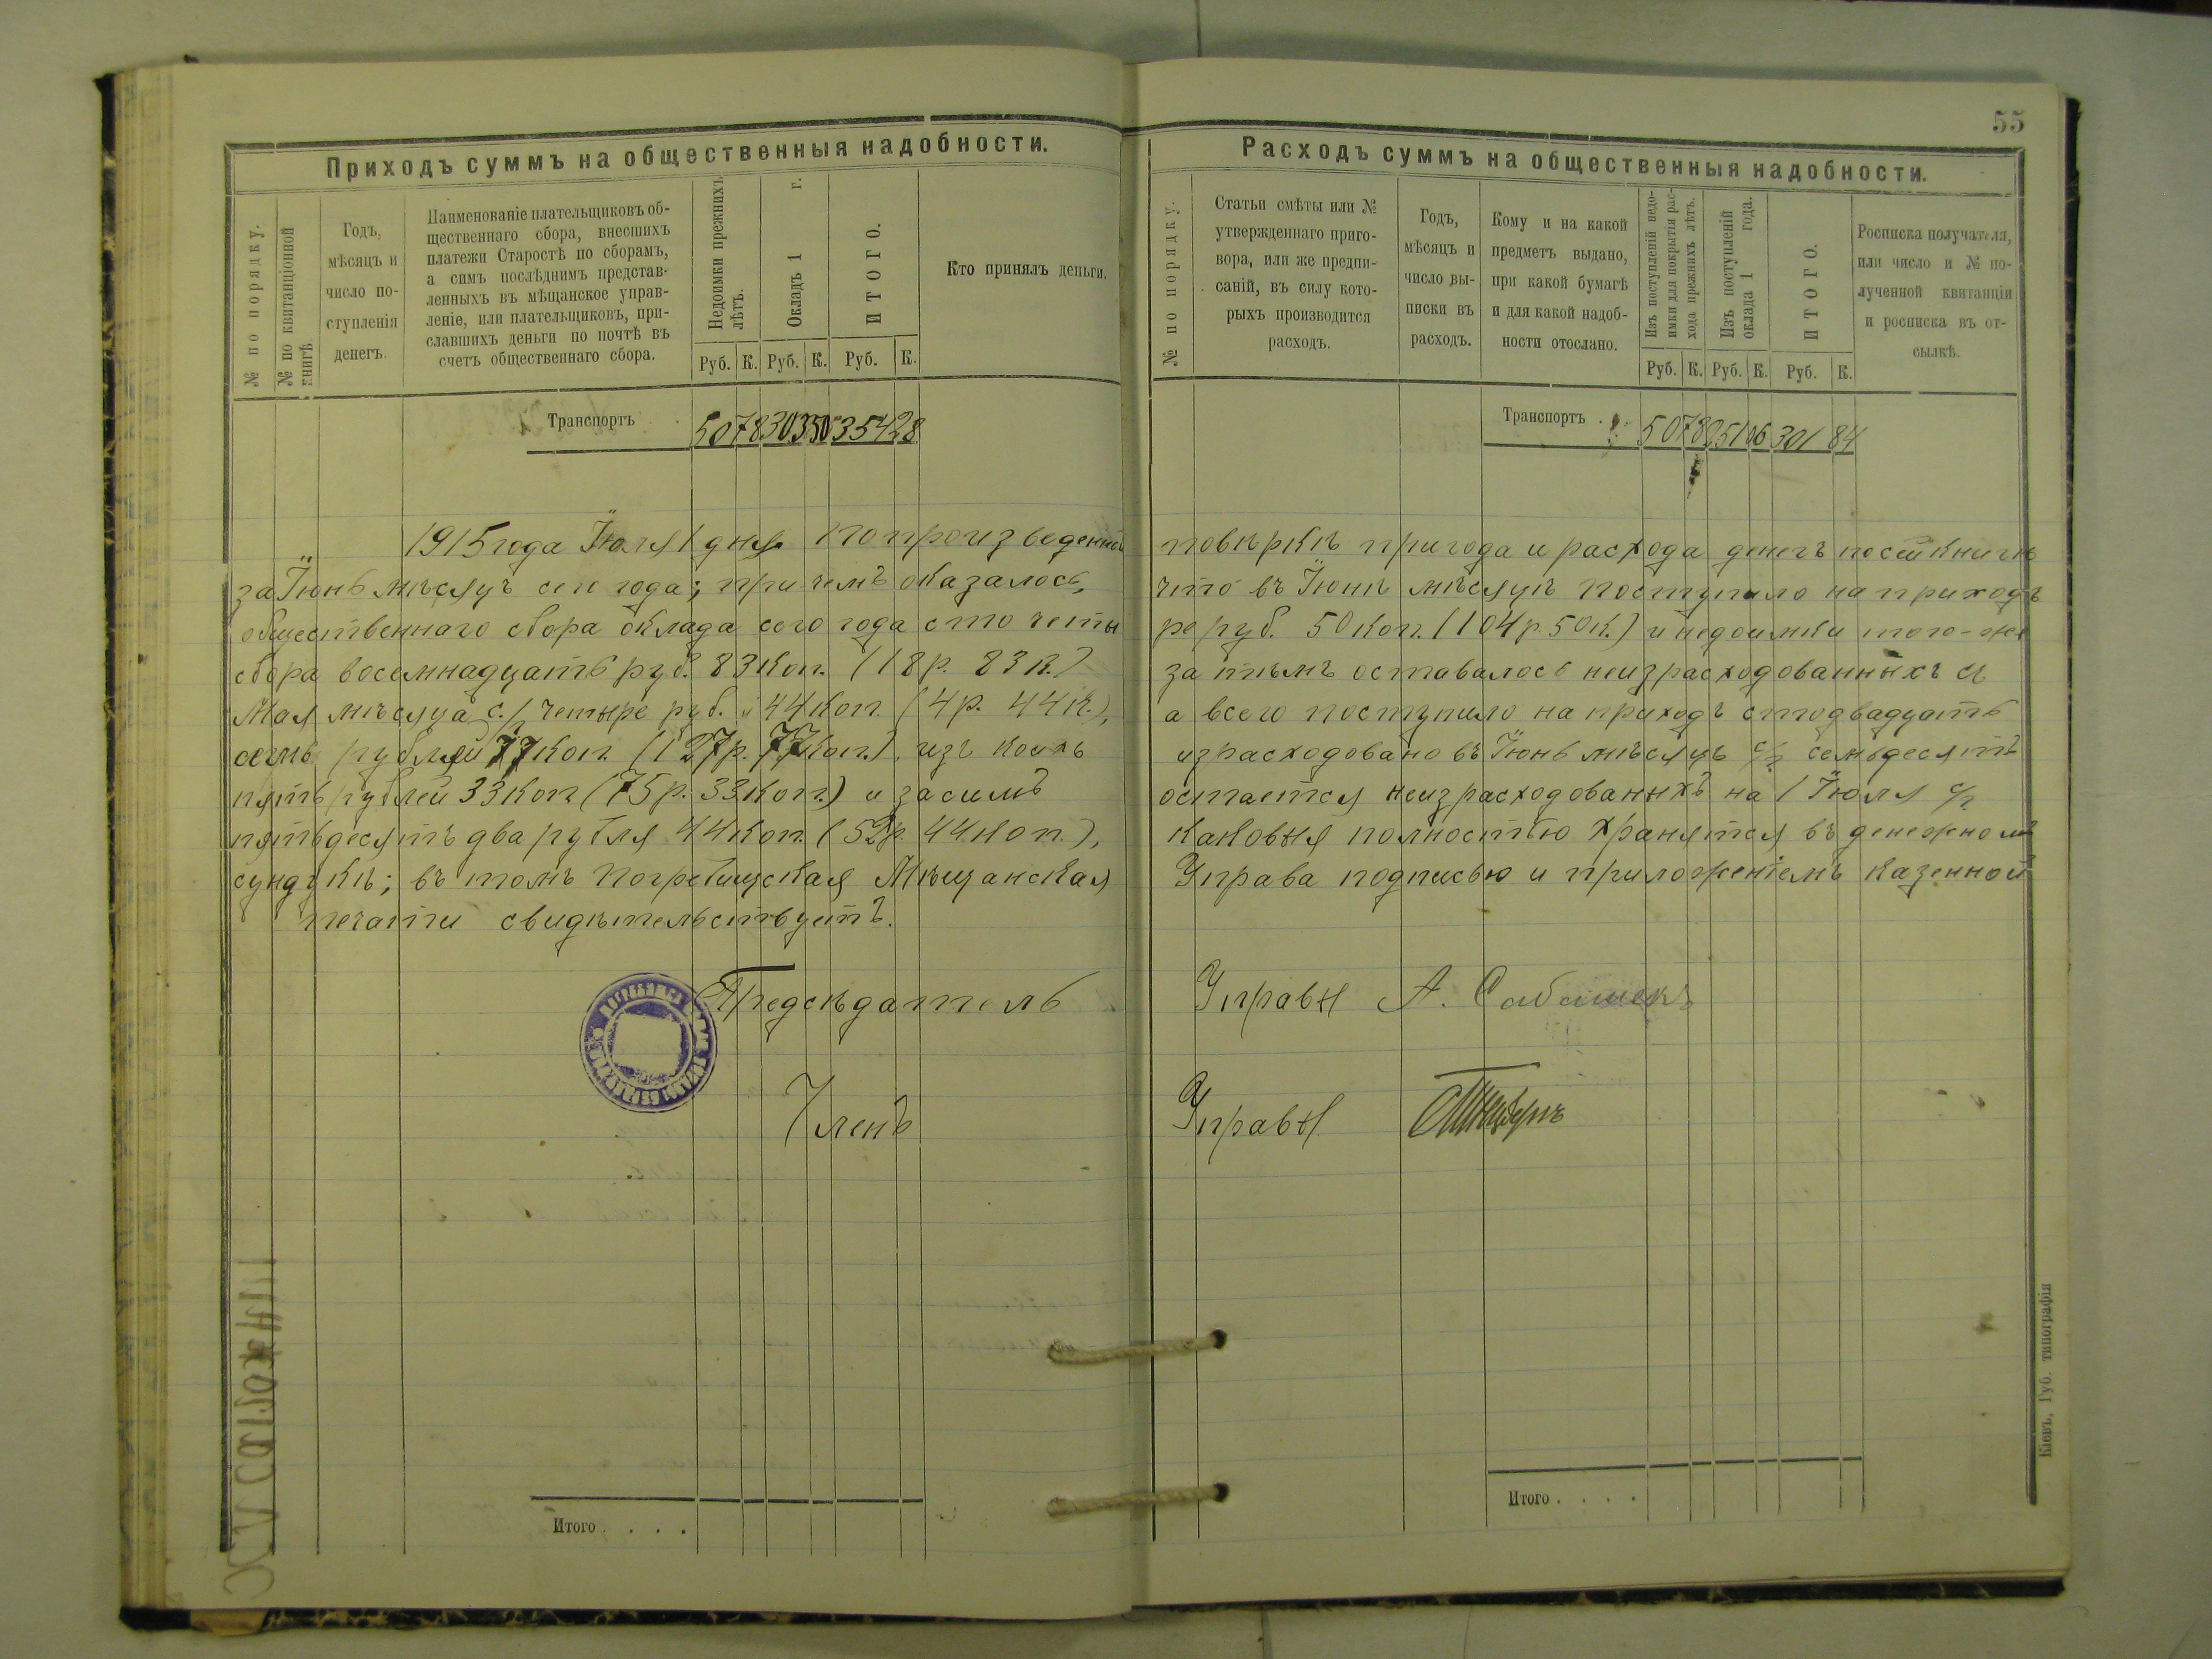 55
Приходъ суммъ на общественныя надобности.
№ по порядку.
№ по квитанціонной книгѣ
Годъ,
мѣсяцъ и
число по-
ступленія
денегъ.
Наименованіе плательщиковъ об-
щественнаго сбора, внесшихъ
платежи Старостѣ по сборамъ,
а симъ послѣднимъ представ-
ленныхъ въ мѣщанское управ-
леніе, или плательщиковъ, при-
славшихъ деньги по почтѣ въ
счетъ общественнаго сбора.
Недоимки прежнихъ
лѣтъ.
Окладъ 1 г.
ИТОГО.
Кто принялъ деньги.
Руб. К. Руб. К. Руб. К.
Транспортъ 50 78 303 50 354 28
Расходъ суммъ на общественныя надобности.
№ по порядку.
Статьи смѣты или №
утвержденнаго приго-
вора, или же предпи-
саній, въ силу кото-
рыхъ производится
расходъ.
Годъ,
мѣсяцъ и
число вы-
писки въ
расходъ.
Кому и на какой
предметъ выдано,
при какой бумагѣ
и для какой надоб-
ности отослано.
Изъ поступленій недо-
имки для покрытія рас-
хода прежнихъ лѣтъ.
Изъ поступленій
оклада 1 года.
ИТОГО.
Росписка получателя,
или число и № по-
лученной квитанціи
и росписка въ от-
сылкѣ.
Руб. К. Руб. К. Руб. К.
Транспортъ . . 50 78 251 06 301 84
1915 года Іюля 1 дня по произведенной повѣркѣ прихода и расхода денегъ по сей книгѣ
за Іюнь мѣсяцъ сего года; при чемъ оказалось, что въ Іюнѣ мѣсяцѣ поступило на приходъ
общественнаго сбора оклада сего года сто четы ре руб. 50 коп. (104 р. 50 к.) и недоимки того-же
сбора восемнадцать руб. 83 коп. (18 р. 83 к.) за тѣмъ оставалось неизрасходованныхъ съ
Мая мѣсяца с./ четыре руб. и 44 коп. (4 р. 44 к.), а всего поступило на приходъ сто двадцать
семь рублей 77 коп. (127 р. 77 коп.). изъ коихъ израсходовано въ Іюнь мѣсяцѣ с/г семьдесятъ
пять рублей 33 коп. (75 р. 33 коп.) и засимъ остается неизрасходованныхъ на 1 Іюля с/г
пятьдесятъ два рубля 44 коп. (52 р. 44 коп.), каковыя полностью хранятся въ денежномъ
сундукѣ; въ томъ Погребищская Мѣщанская Управа подписью и приложеніемъ казенной
печати свидѣтельствуетъ.
Предсѣдатель Управы А.
Членъ Управы
Итого . . . .
Итого . . . .
Кіевъ, Губ. типографія